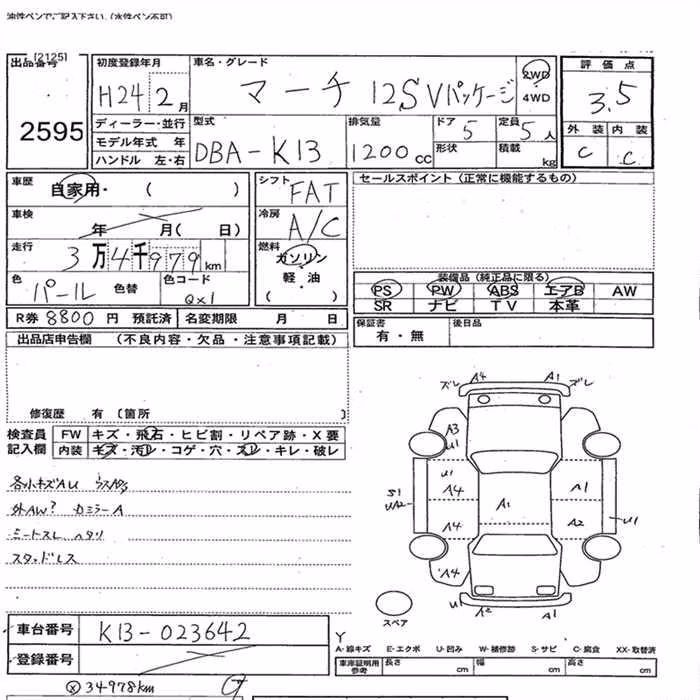 油性ペンでご記入下さい。(水性ペン不可)
[2125]
出品番号
2595
初度登録年月
H24 2月
車名・グレード
マーチ 12S Vパッケージ
2WD
4WD
評価点
3.5
外装 内装
C C
ディーラー・並行
モデル年式 年
ハンドル 左・右
型式
DBA-K13
排気量
1200cc
ドア 5
形状
定員 5人
積載 kg
車歴
自家用・( )
車検
年 月( 日)
走行
3万4千979km
色
パール 色替
色コード
QX1
シフト
FAT
冷房
A/C
燃料
ガソリン
軽・油
( )
セールスポイント(正常に機能するもの)
装備品(純正品に限る)
PS PW ABS エアB AW
SR ナビ TV 本革
R券 8800円 預託済 名変期限 月 日
保証書
有・無
後日品
出品店申告欄 (不良内容・欠品・注意事項記載)
修復歴 有〔箇所 〕
検査員
記入欄
FW キズ・飛石・ヒビ割・リペア跡・X要
内装 キズ・汚レ・コゲ・穴・スレ・キレ・破レ
各小キズAU
外AW? カミラーA
シートスレ ヘタリ
スタッドレス
ズレ A4 A1 ズレ
A3
U1
U1
A4 A1 A1
S1
UA2
A4 A2 U1
A4
U1 A2 A1
スペア
車台番号 K13-023642
登録番号
Y
A-線キズ E-エクボ U-凹み W-補修跡 S-サビ C-腐食 XX-取替済
車庫証明用
参考
長さ cm 幅 cm 高さ cm
34978km